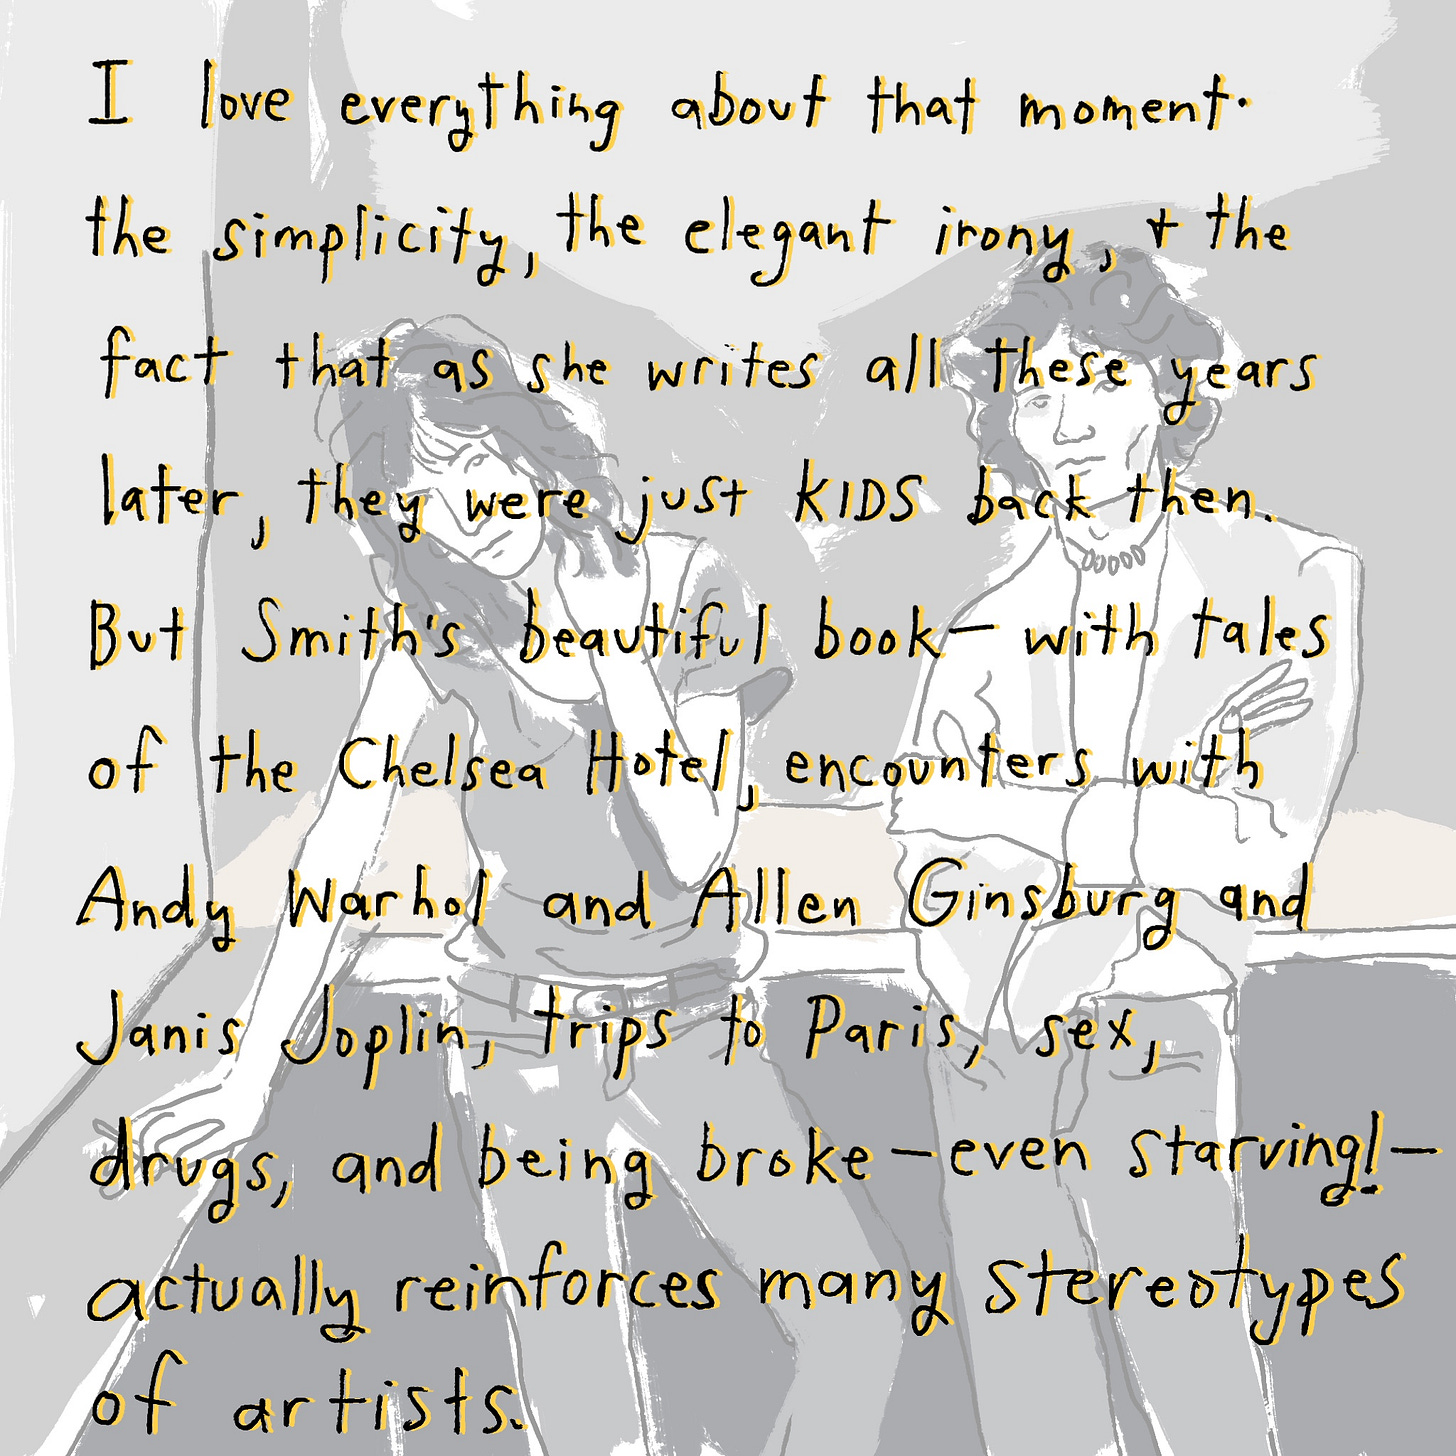 I love everything about that moment.
the simplicity, the elegant irony, + the
fact that as she writes all these years
later, they were just KIDS back then.
But Smith's beautiful book— with tales
of the Chelsea Hotel, encounters with
Andy Warhol and Allen Ginsburg and
Janis Joplin, trips to Paris, sex,
drugs, and being broke—even starving!—
actually reinforces many stereotypes
of artists.